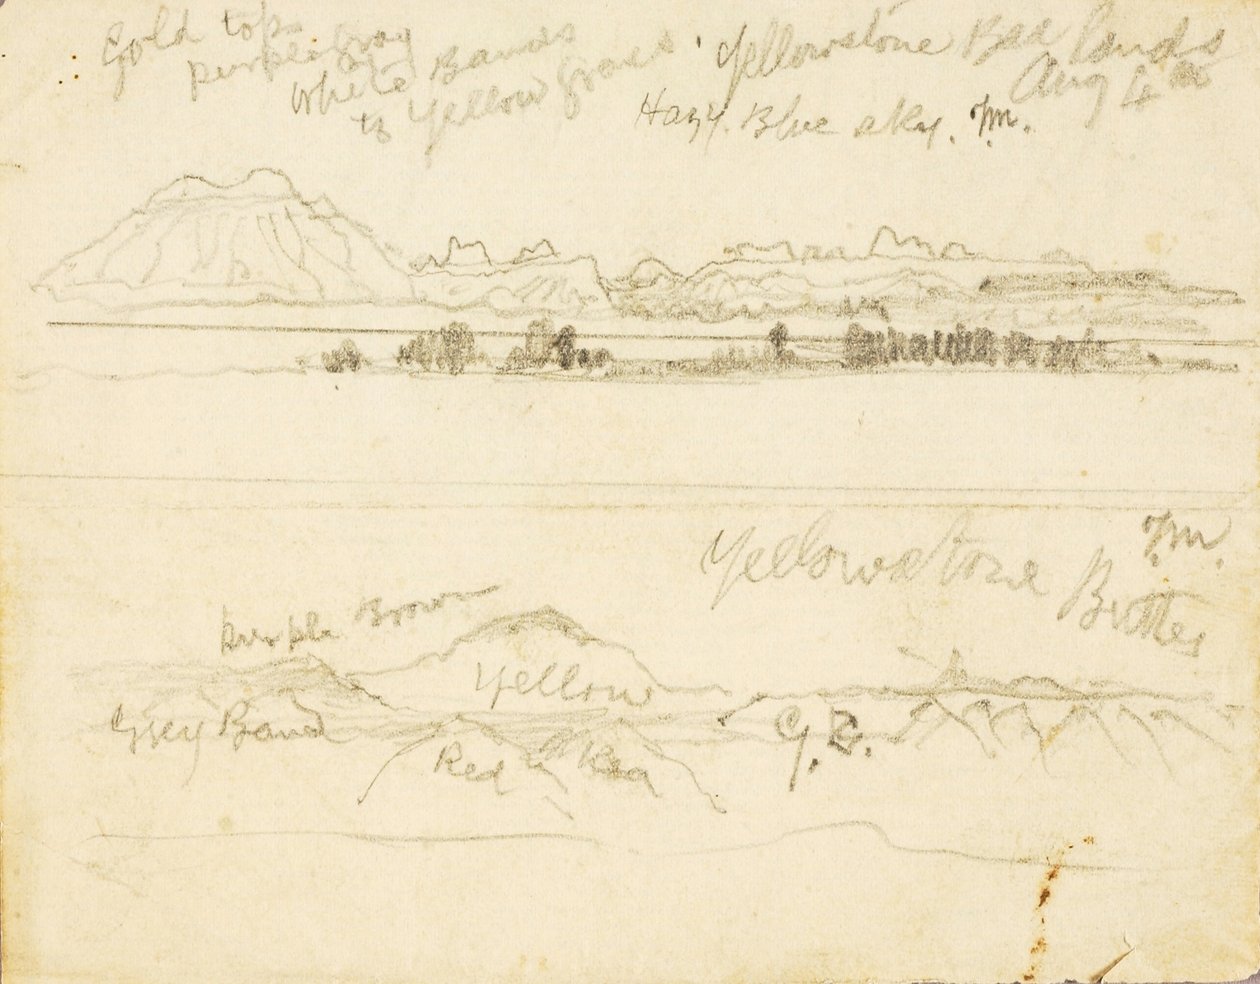 Gold tops
purple Gray
White Bands
to Yellow Grass
Yellowstone Bad lands
Aug 4th
Hazy. Blue sky. T.M.
Yellowstone Buttes
T.M.
purple Brown
Yellow
Grey Band
Red
Red
G. B.